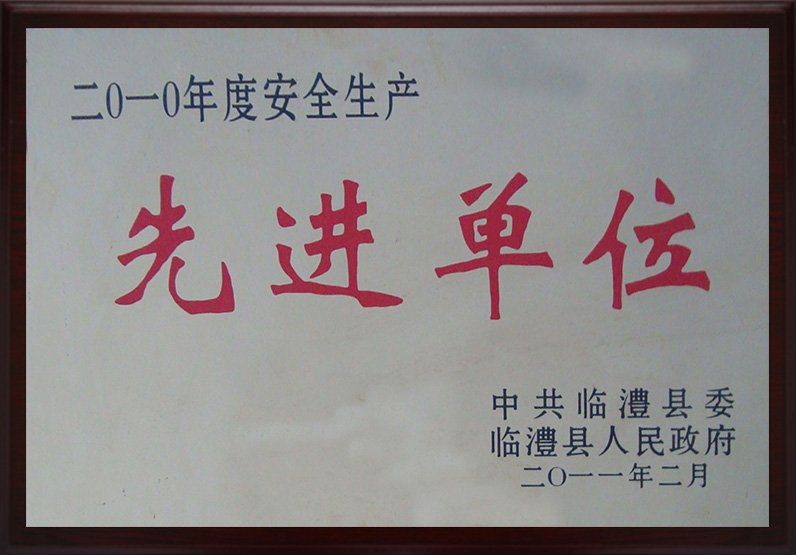 二〇一〇年度安全生产
先进单位
中共临澧县委
临澧县人民政府
二〇一一年二月